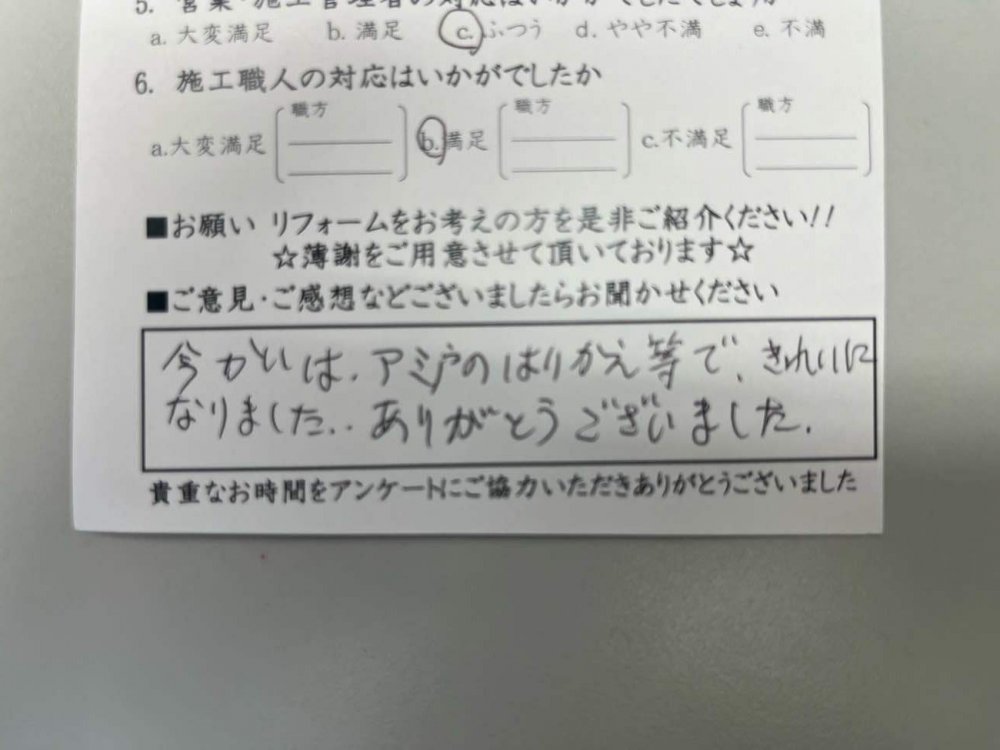 5. 営業・施工管理者の対応はいかがでしたでしょうか
a. 大変満足 b. 満足 c. ふつう d. やや不満 e. 不満
6. 施工職人の対応はいかがでしたか
職方 職方 職方
a.大変満足 b.満足 c.不満足
■お願い リフォームをお考えの方を是非ご紹介ください!!
☆薄謝をご用意させて頂いております☆
■ご意見・ご感想などございましたらお聞かせください
今かいは、アミ戸のはりかえ等で、きれいに
なりました.. ありがとうございました.
貴重なお時間をアンケートにご協力いただきありがとうございました